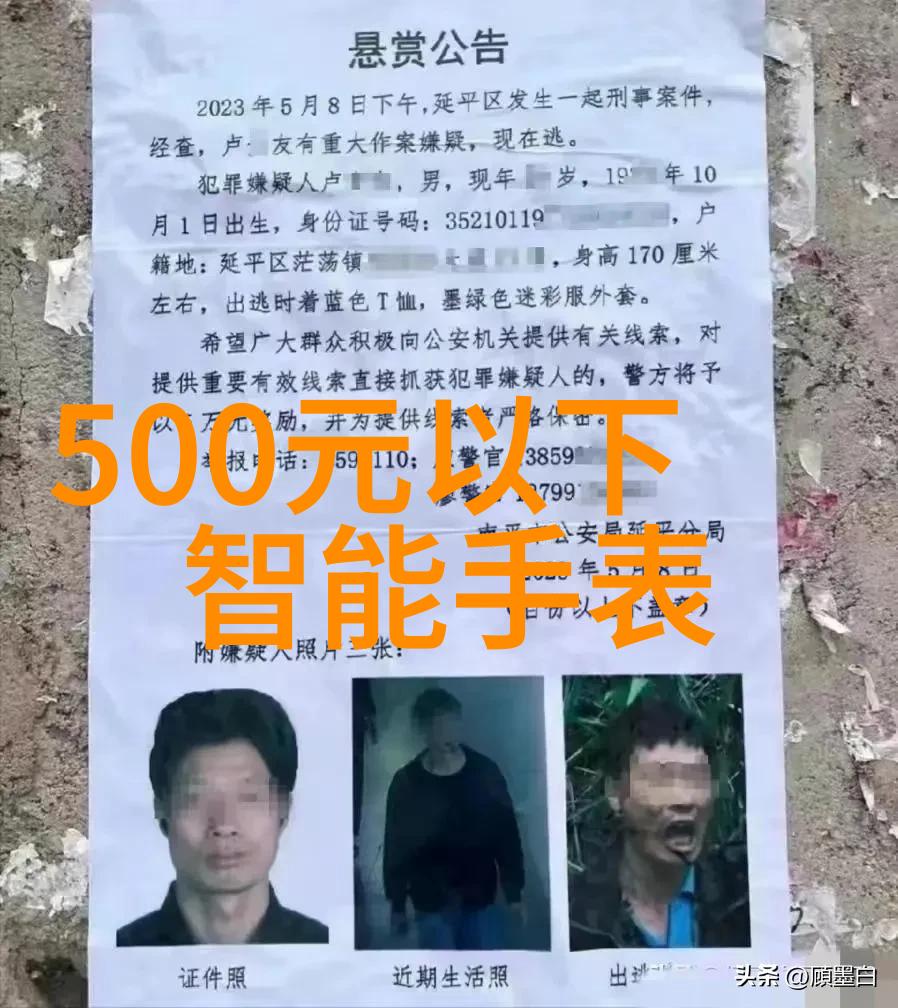 悬赏公告
2023年5月8日下午，延平区发生一起刑事案件，
经查，卢 友有重大作案嫌疑，现在逃。
犯罪嫌疑人卢 ，男，现年 岁，19 年10
月1日出生，身份证号码：35210119 ，户
籍地：延平区茫荡镇 ，身高170厘米
左右，出逃时着蓝色T恤，墨绿色迷彩服外套。
希望广大群众积极向公安机关提供有关线索，对
提供重要有效线索直接抓获犯罪嫌疑人的，警方将予
以 万元奖励，并为提供线索者严格保密。
500元以下
举报电话： 59 110； 警官 3859
警 799
智能手表
南平市公安局延平分局
2023年5月8日
附嫌疑人照片三张：
证件照
近期生活照
出逃
头条 @顾墨白